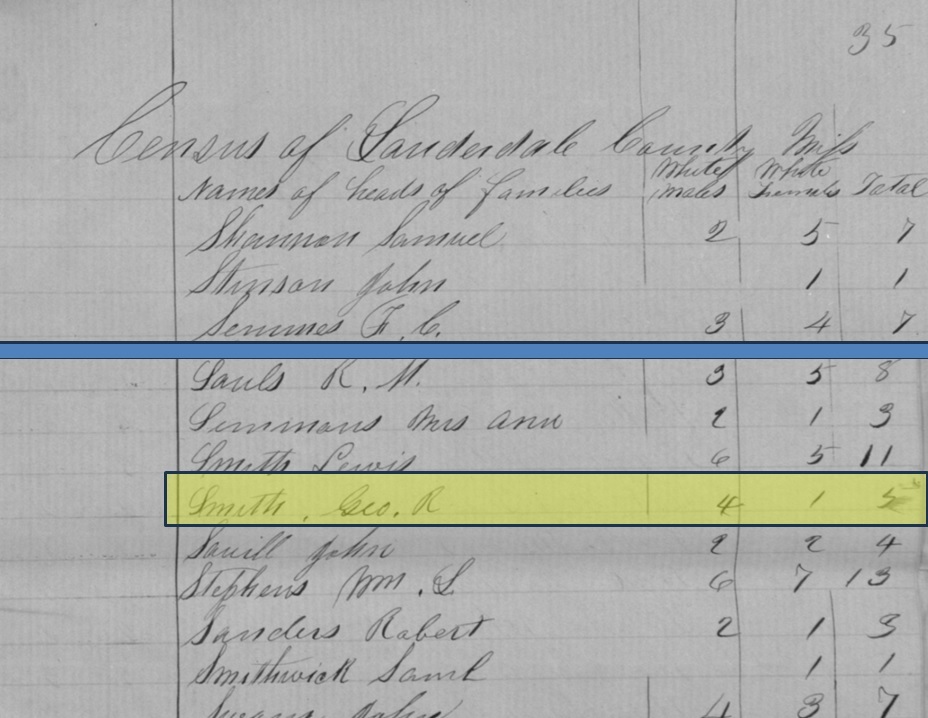 35
Census of Lauderdale County Miss
Names of heads of families White males White Females Total
Shannon Samuel 2 5 7
Stinson John 1 1
Semmes F. C. 3 4 7
Sauls R. M. 3 5 8
Semmons Mrs Ann 2 1 3
Smith Lewis 6 5 11
Smith . Geo. R 4 1 5
Savill John 2 2 4
Stephens Wm. S 6 7 13
Sanders Robert 2 1 3
Smithwick Saml 1 1
John 4 3 7